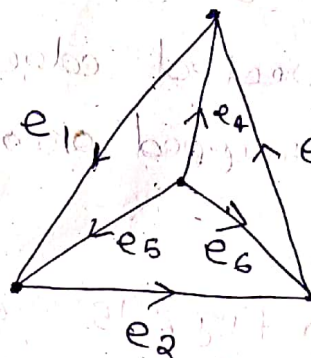 e4
e1
e
e5
e6
e2